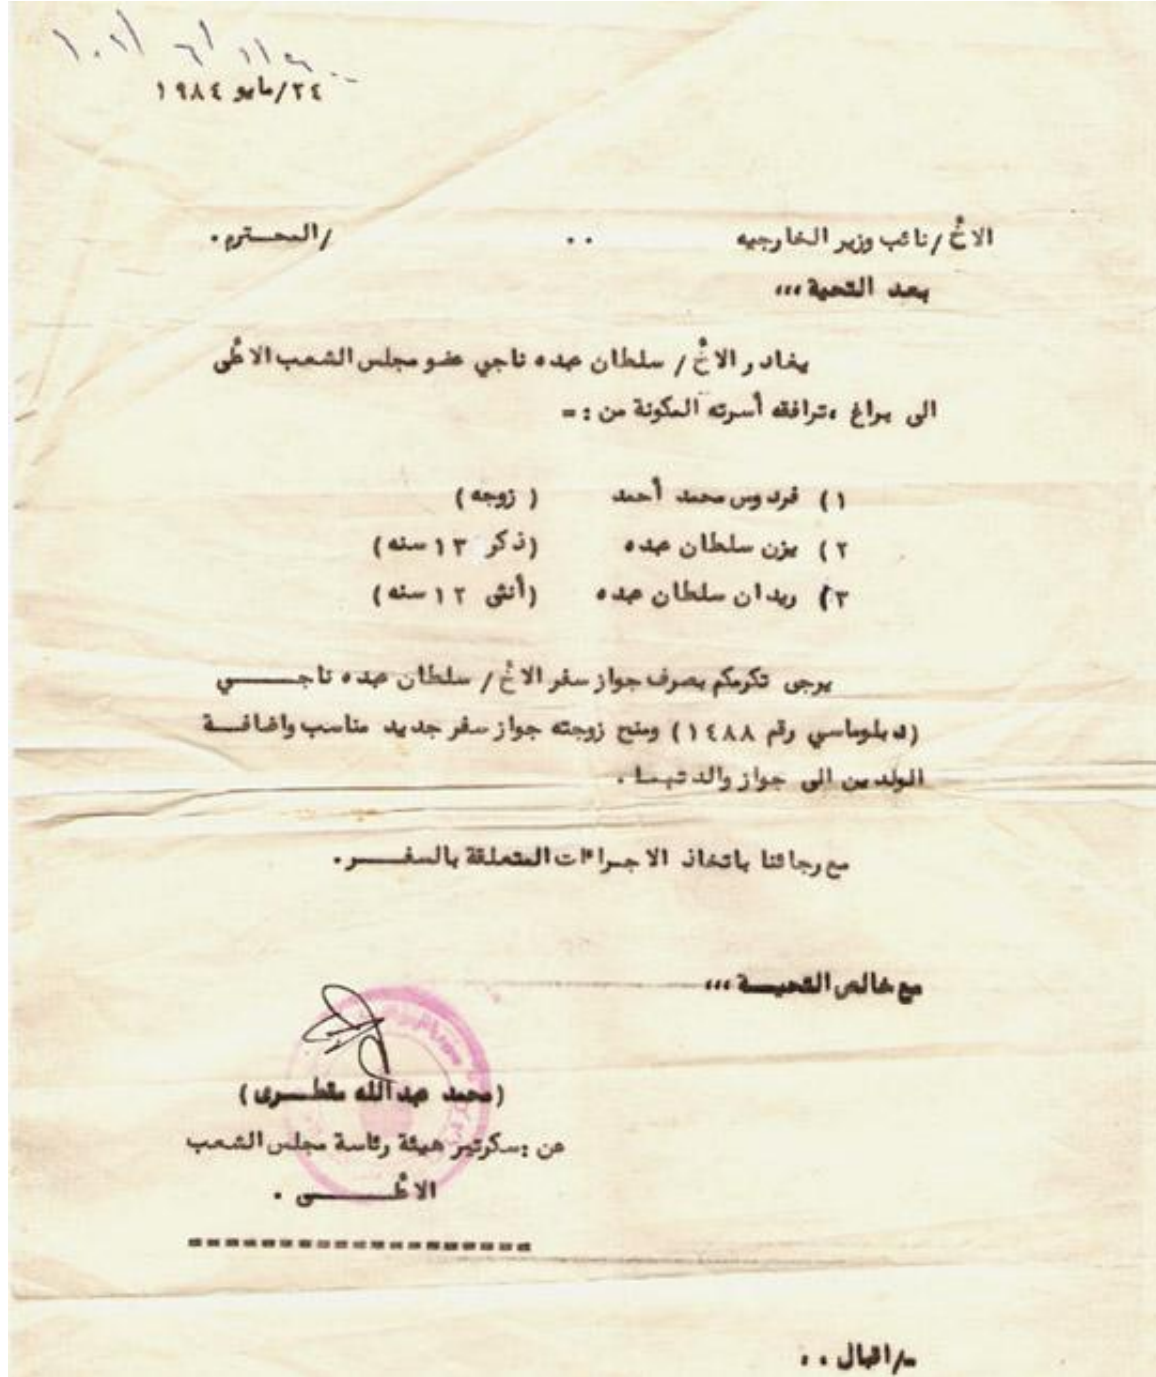 ٢٤/مايو ١٩٨٤
الاخ/نائب وزير الخارجيه .. /المحـترم.
بعد التحية،،،
يغادر الاخ/ سلطان عبده ناجي عضو مجلس الشعب الاعلى
الى براغ ،ترافقه أسرته المكونة من :=
١) فردوس محمد أحمد ( زوجه)
٢) يزن سلطان عبده (ذكر ١٣ سنه)
٣) ريدان سلطان عبده (أنثى ١٢ سنه)
يرجى تكرمكم بصرف جواز سفر الاخ/ سلطان عبده ناجــي
(دبلوماسي رقم ١٤٨٨) ومنح زوجته جواز سفر جديد مناسب واضافــة
الولدين الى جواز والدتهما .
مع رجائنا باتخاذ الاجراءات المتعلقة بالسفــر.
مع خالص التحيــة ،،،
(محمد عبدالله مقطــرى)
عن :سكرتير هيئة رئاسة مجلس الشعب
الاعلــى .
=================
ـ/اقبال ..